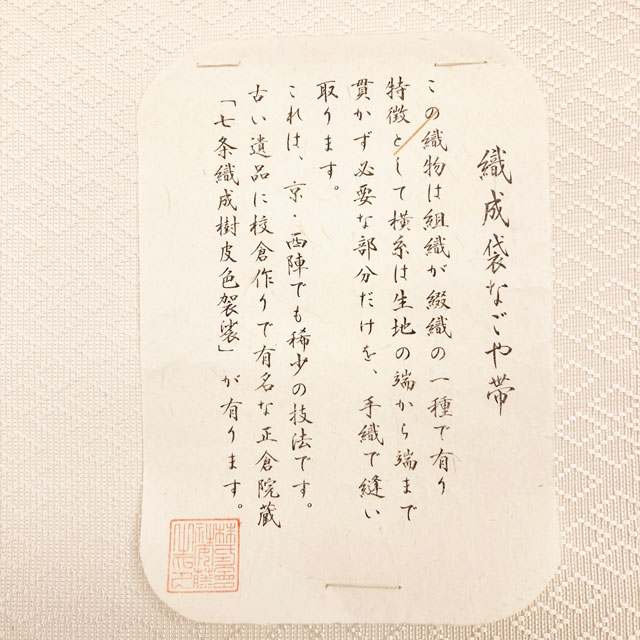 織成袋なごや帯
この織物は組織が綴織の一種で有り
特徴として横糸は生地の端から端まで
貫かず必要な部分だけを、手織で縫い
取ります。
これは、京・西陣でも稀少の技法です。
古い遺品に校倉作りで有名な正倉院蔵
「七条織成樹皮色袈裟」が有ります。